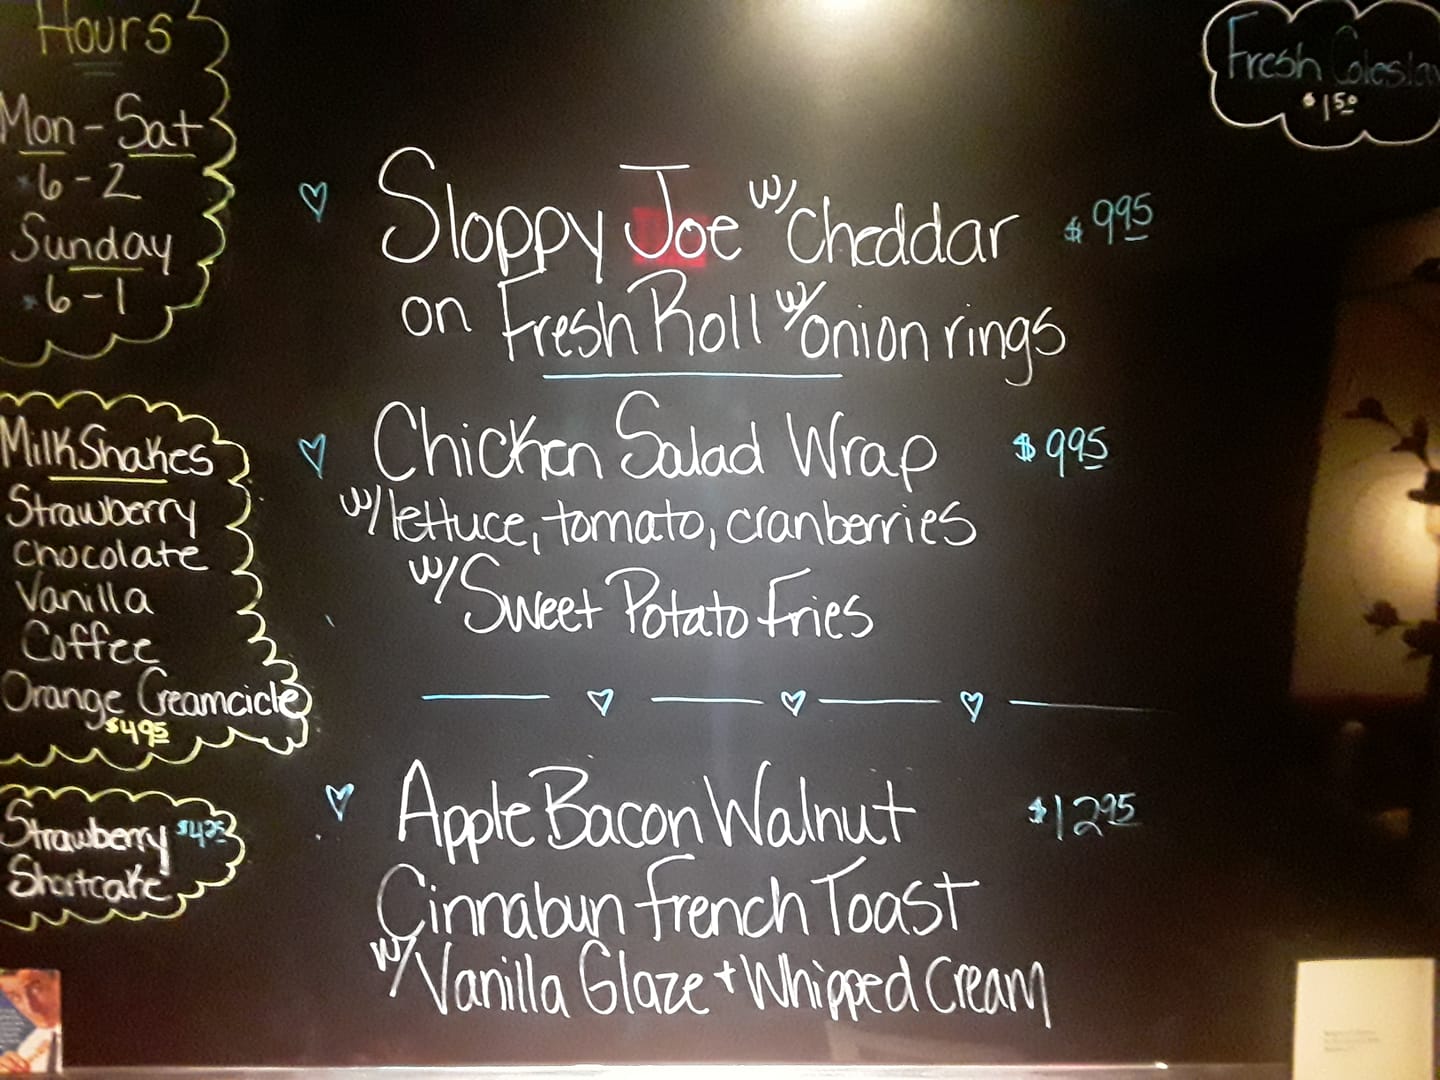 Hours
Mon - Sat
6 - 2
Sunday
6 - 1
MilkShakes
Strawberry
Chocolate
Vanilla
Coffee
Orange Creamcicle
$4.95
Strawberry $4.25
Shortcake
Fresh Coleslaw
$1.50
Sloppy Joe w/ Cheddar $9.95
on Fresh Roll w/ onion rings
Chicken Salad Wrap $9.95
w/ lettuce, tomato, cranberries
w/ Sweet Potato Fries
Apple Bacon Walnut $12.95
Cinnabun French Toast
w/ Vanilla Glaze + Whipped Cream